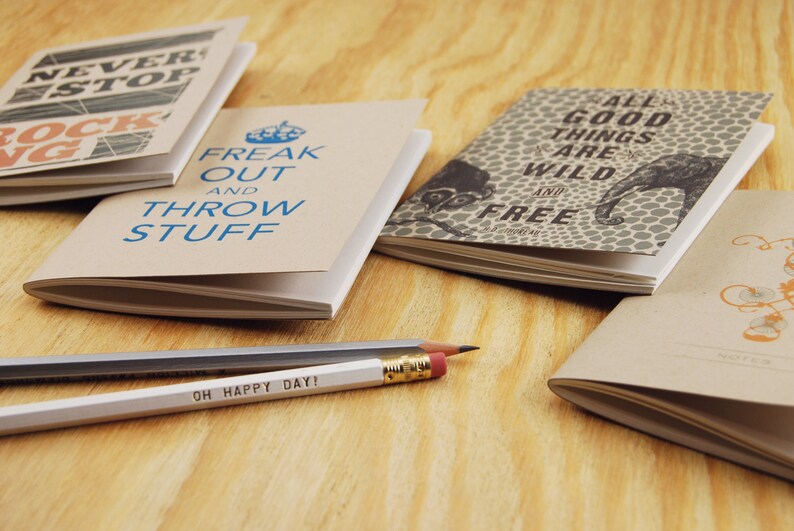 NEVER
STOP
ROCK
ING
FREAK
OUT
AND
THROW
STUFF
ALL
GOOD
THINGS
ARE
WILD
AND
FREE
H.D. THOREAU
NOTES
OH HAPPY DAY!